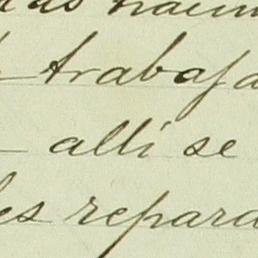 trabaja
allí se
es repara